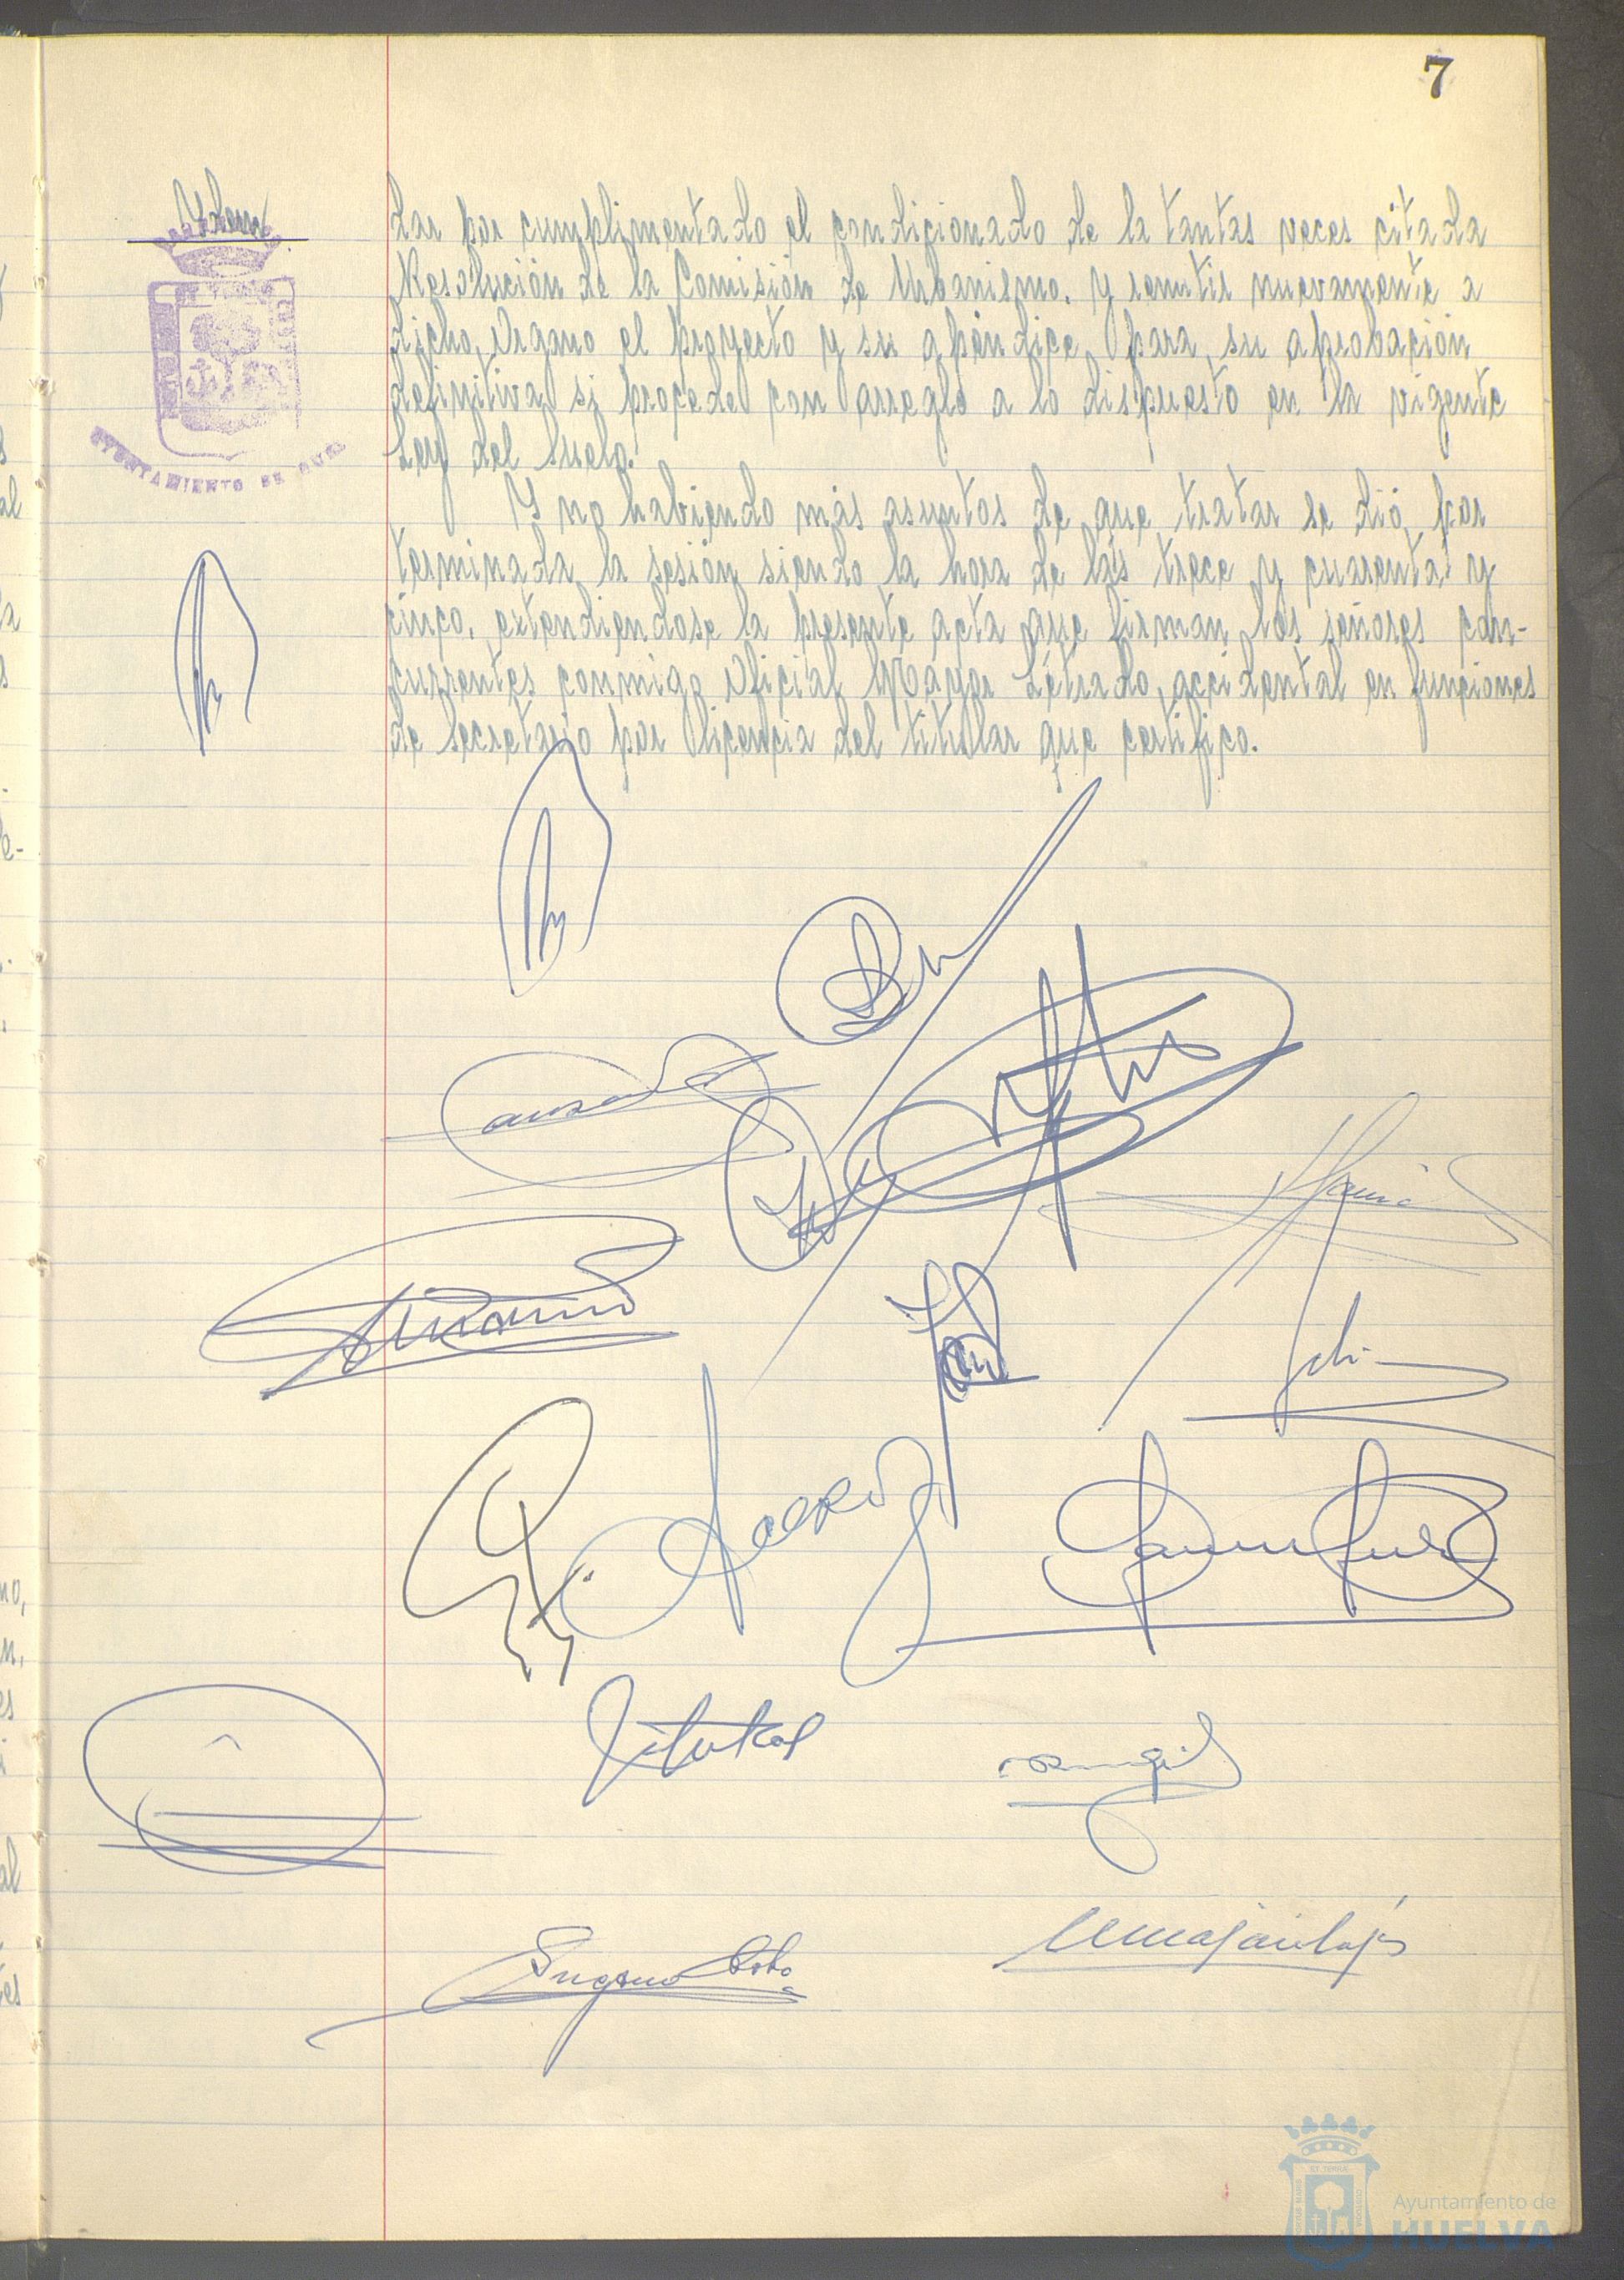 7
Ydem
dar por cumplimentado el condicionado de la tantas veces citada
Resolución de la Comisión de Urbanismo. y remitir nuevamente a
dicho Organo el proyecto y su apéndice para su aprobación
definitiva si procede con arreglo a lo dispuesto en la vigente
Ley del Suelo.
Y no habiendo más asuntos de que tratar se dió por
terminada la sesión siendo la hora de las trece y cuarenta y
cinco, extendiendose la presente acta que firman los señores con-
currentes conmigo Oficial Mayor Letrado, accidental en funciones
de Secretario por licencia del titular que certifico.
AYUNTAMIENTO DE
Eugenio
Ayuntamiento de
HUELVA